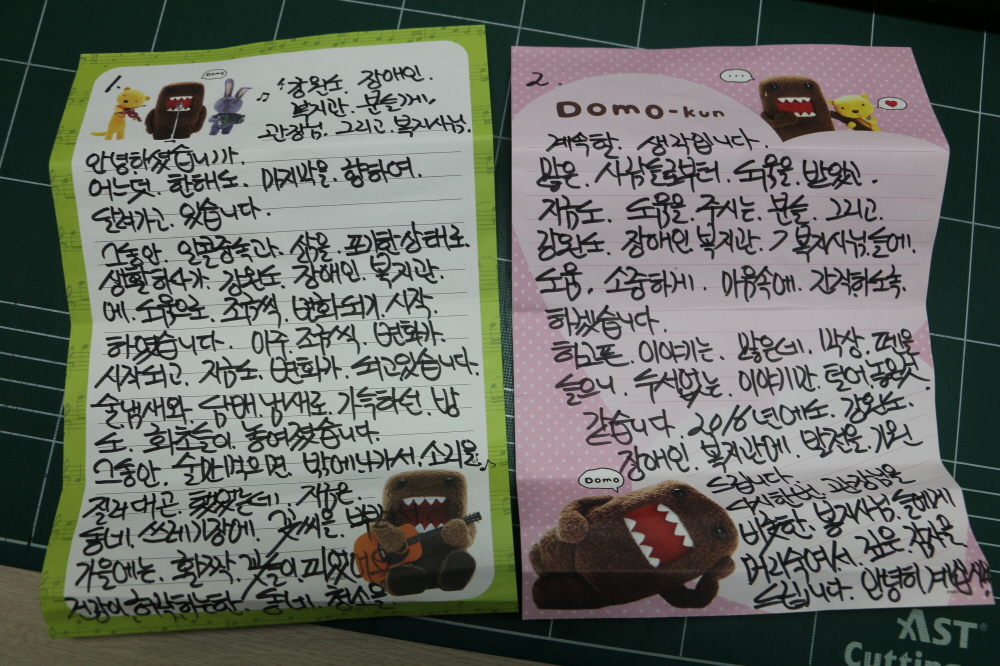 1.
Domo
강원도 장애인.
복지관. 분들께,
관장님. 그리고. 복지사님.
안녕하셨습니까.
어느덧. 한해도. 마지막을. 향하여.
달려가고. 있습니다.
그동안. 알콜중독과. 삶을. 포기한상태로.
생활하다가. 강원도. 장애인. 복지관.
에. 도움으로. 조금씩. 변화되기 시작.
하였습니다. 아주. 조금씩. 변화가.
시작되고. 지금도. 변화가. 되고있습니다.
술냄새와. 담배냄새로. 가득하던. 방
도. 화초들이. 놓여졌습니다.
그동안. 술만먹으면. 밖에나가서. 소리를.
질러대고. 했었는데. 지금은.
동네. 쓰레기장에. 꽃씨를.
가을에는. 활짝. 꽃들이. 피었
건강이 허락하는한. 동네. 청소를.
2.
...
DOMO-KUN
계속할. 생각입니다.
많은. 사람들로부터. 도움을. 받았고.
지금도. 도움을. 주시는. 분들. 그리고.
강원도. 장애인복지관. 복지사님들에.
도움. 소중하게. 마음속에. 간직하도록.
하겠습니다.
하고픈. 이야기는. 많은데. 막상. 펜을
들으니. 두서없는. 이야기만. 털어놓은것.
같습니다. 2016년에도. 강원도.
장애인. 복지관에. 발전을. 기원
드립니다.
Domo
관장님을
비롯한. 복지사님. 들에게
머리숙여서. 깊은. 감사를
드립니다. 안녕히
AST
Cutting